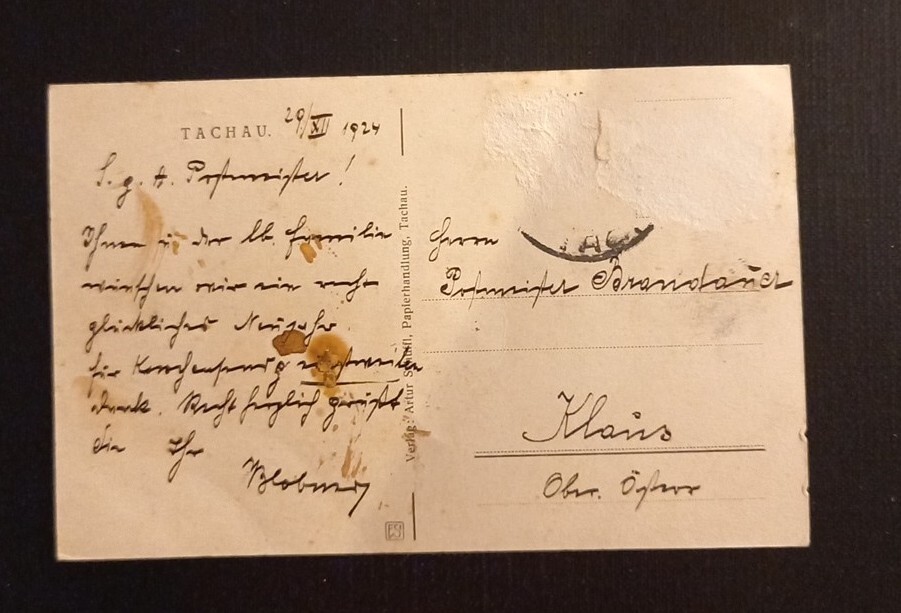 TACHAU. 29/XII 1924
S. g. H. Postmeister!
Ihnen u der lb. Familie
wünschen wir ein recht
glückliches Neujahr
für
dank. Recht herzlich grüßt
die Ihr
Verlag: Artur Papierhandlung, Tachau.
TAC
Herrn
Postmeister Brandauer
Klaus
Ober. Österr